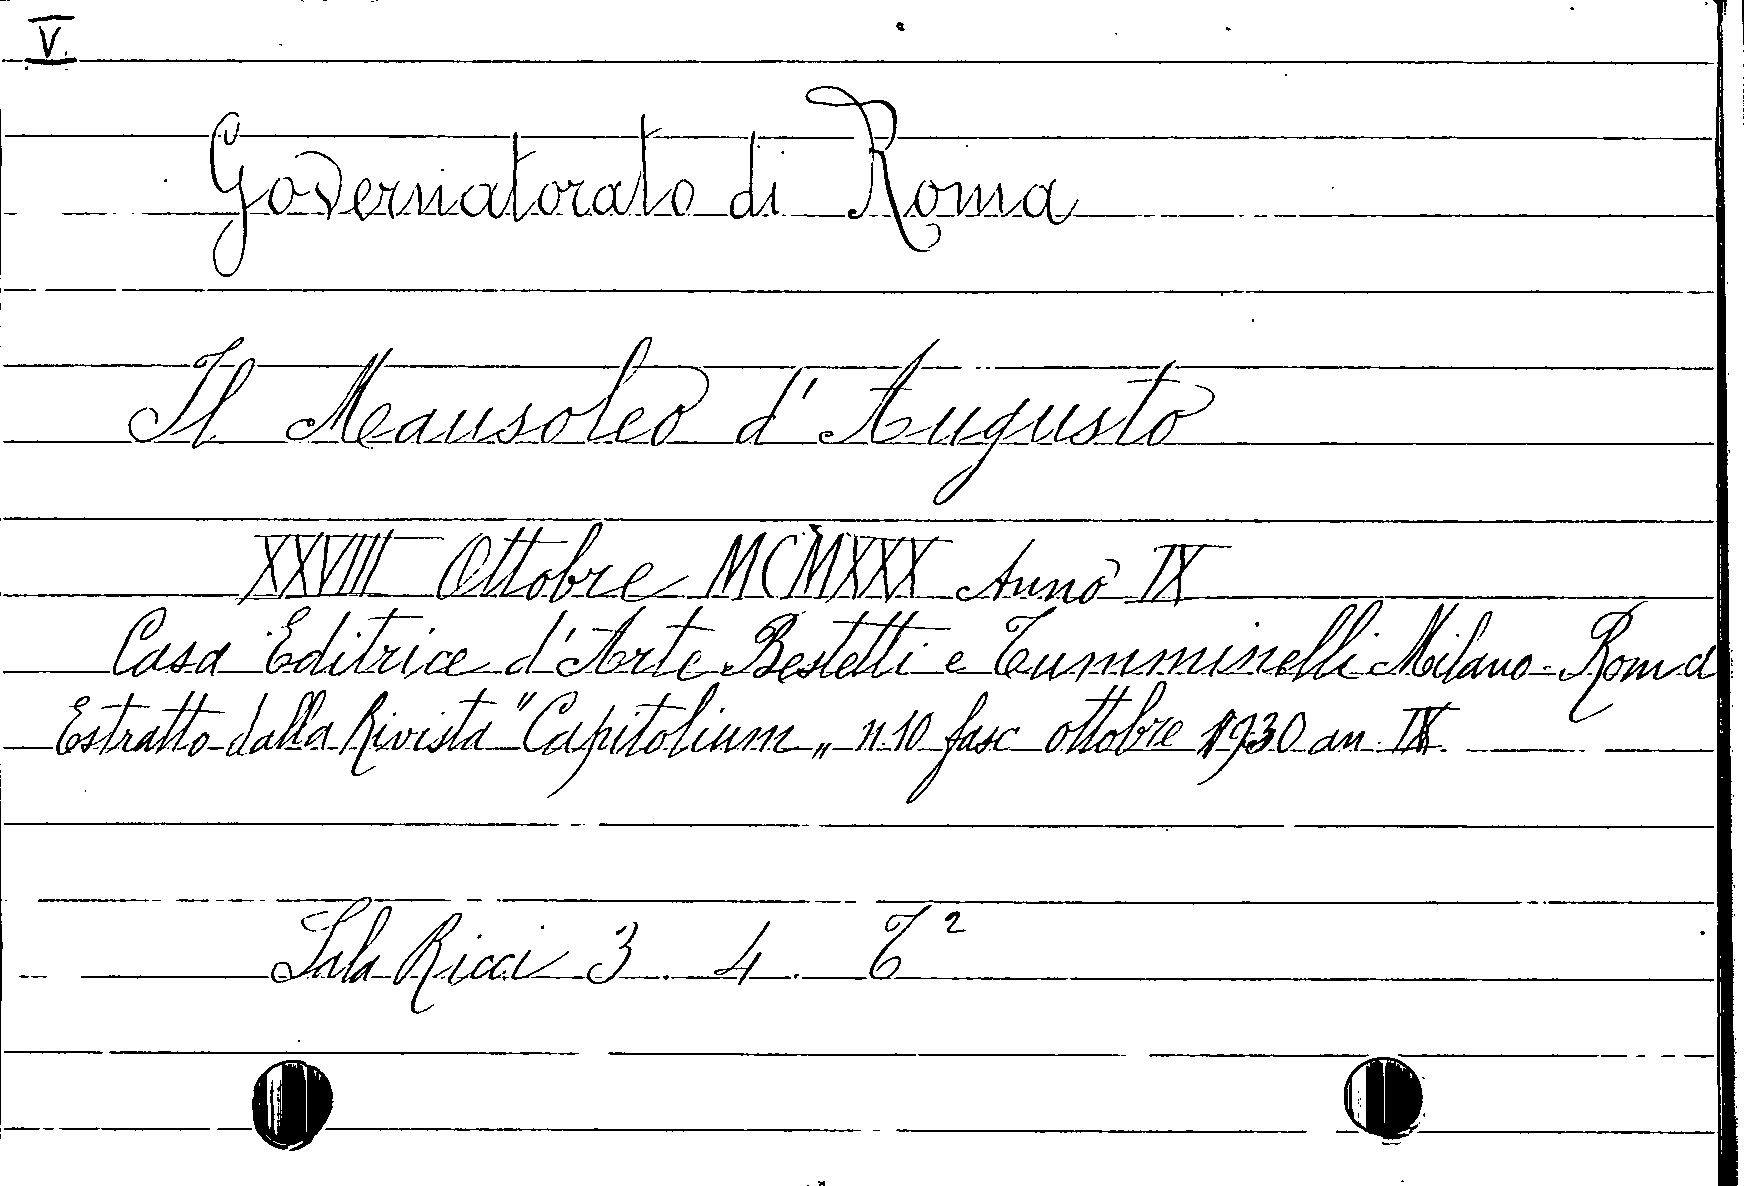 V.
Governatorato di Roma
Il Mausoleo d'Augusto
XXVIII Ottobre MCMXXX Anno IX
Casa Editrice d'Arte Bestetti e Tumminelli Milano-Roma
Estratto dalla Rivista "Capitolium„ n.10 fasc ottobre 1930 an IX
Sala Ricci 3. 4. T²